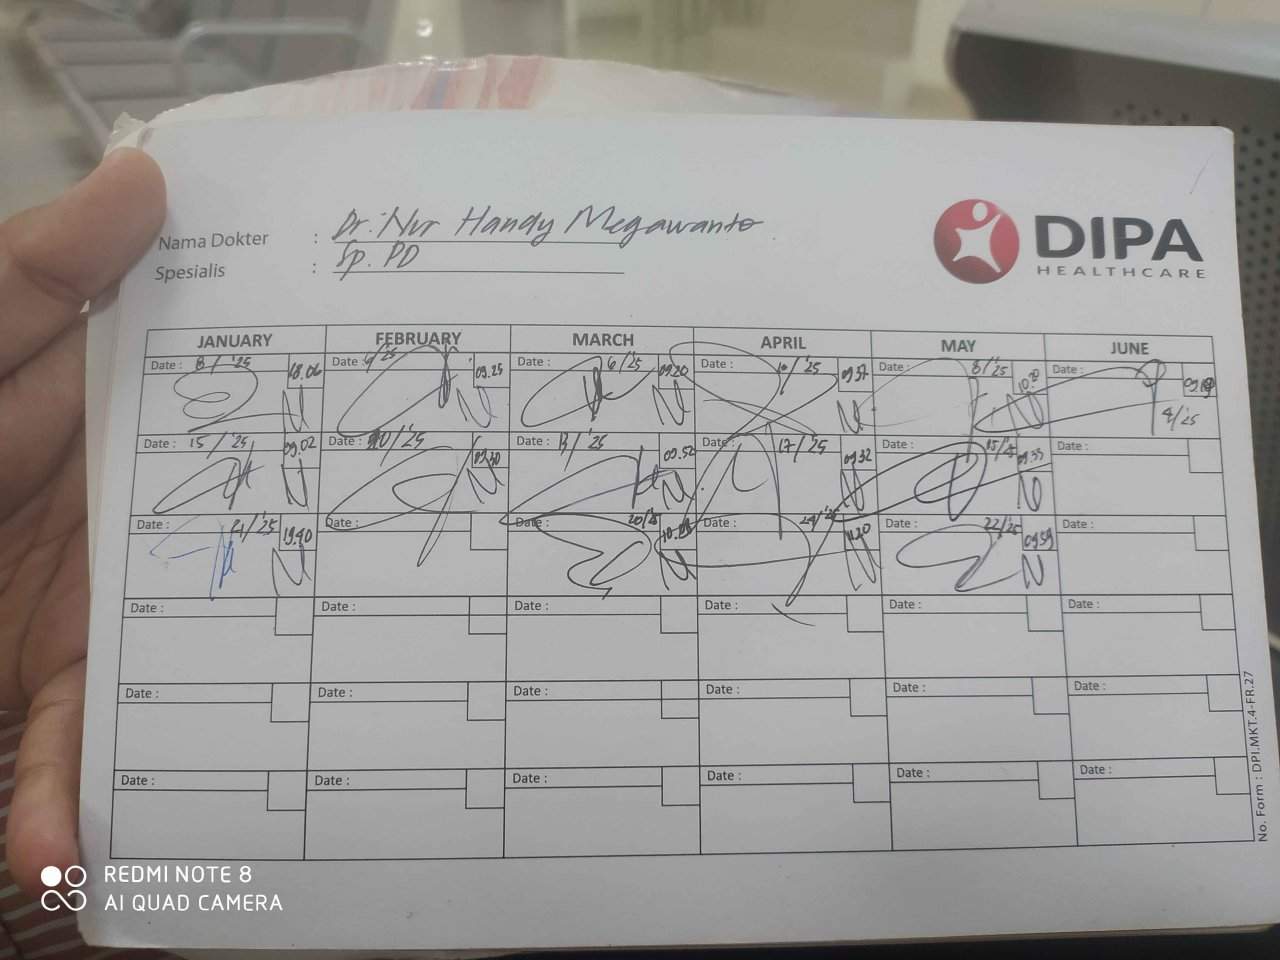 Nama Dokter : Dr. Nur Handy Megawanto
Spesialis : Sp. PD
DIPA
HEALTHCARE
JANUARY FEBRUARY MARCH APRIL MAY JUNE
Date : 8/'25 18.06 Date : /'25 09.25 Date : 6/'25 09.20 Date : 10/'25 09.37 Date : 8/'25 10.20 Date : 4/'25
Date : 15/'25 09.02 Date : 20/'25 Date : 13/'25 09.52 Date : 17/'25 09.32 Date : 15/'25 09.33 Date :
Date : 19.40 Date : Date : 20/'25 Date : 24/'25 11.20 Date : 22/'25 09.59 Date :
Date : Date : Date : Date : Date : Date :
Date : Date : Date : Date : Date : Date :
Date : Date : Date : Date : Date : Date :
No. Form : DPI.MKT.4-FR.27
REDMI NOTE 8
AI QUAD CAMERA